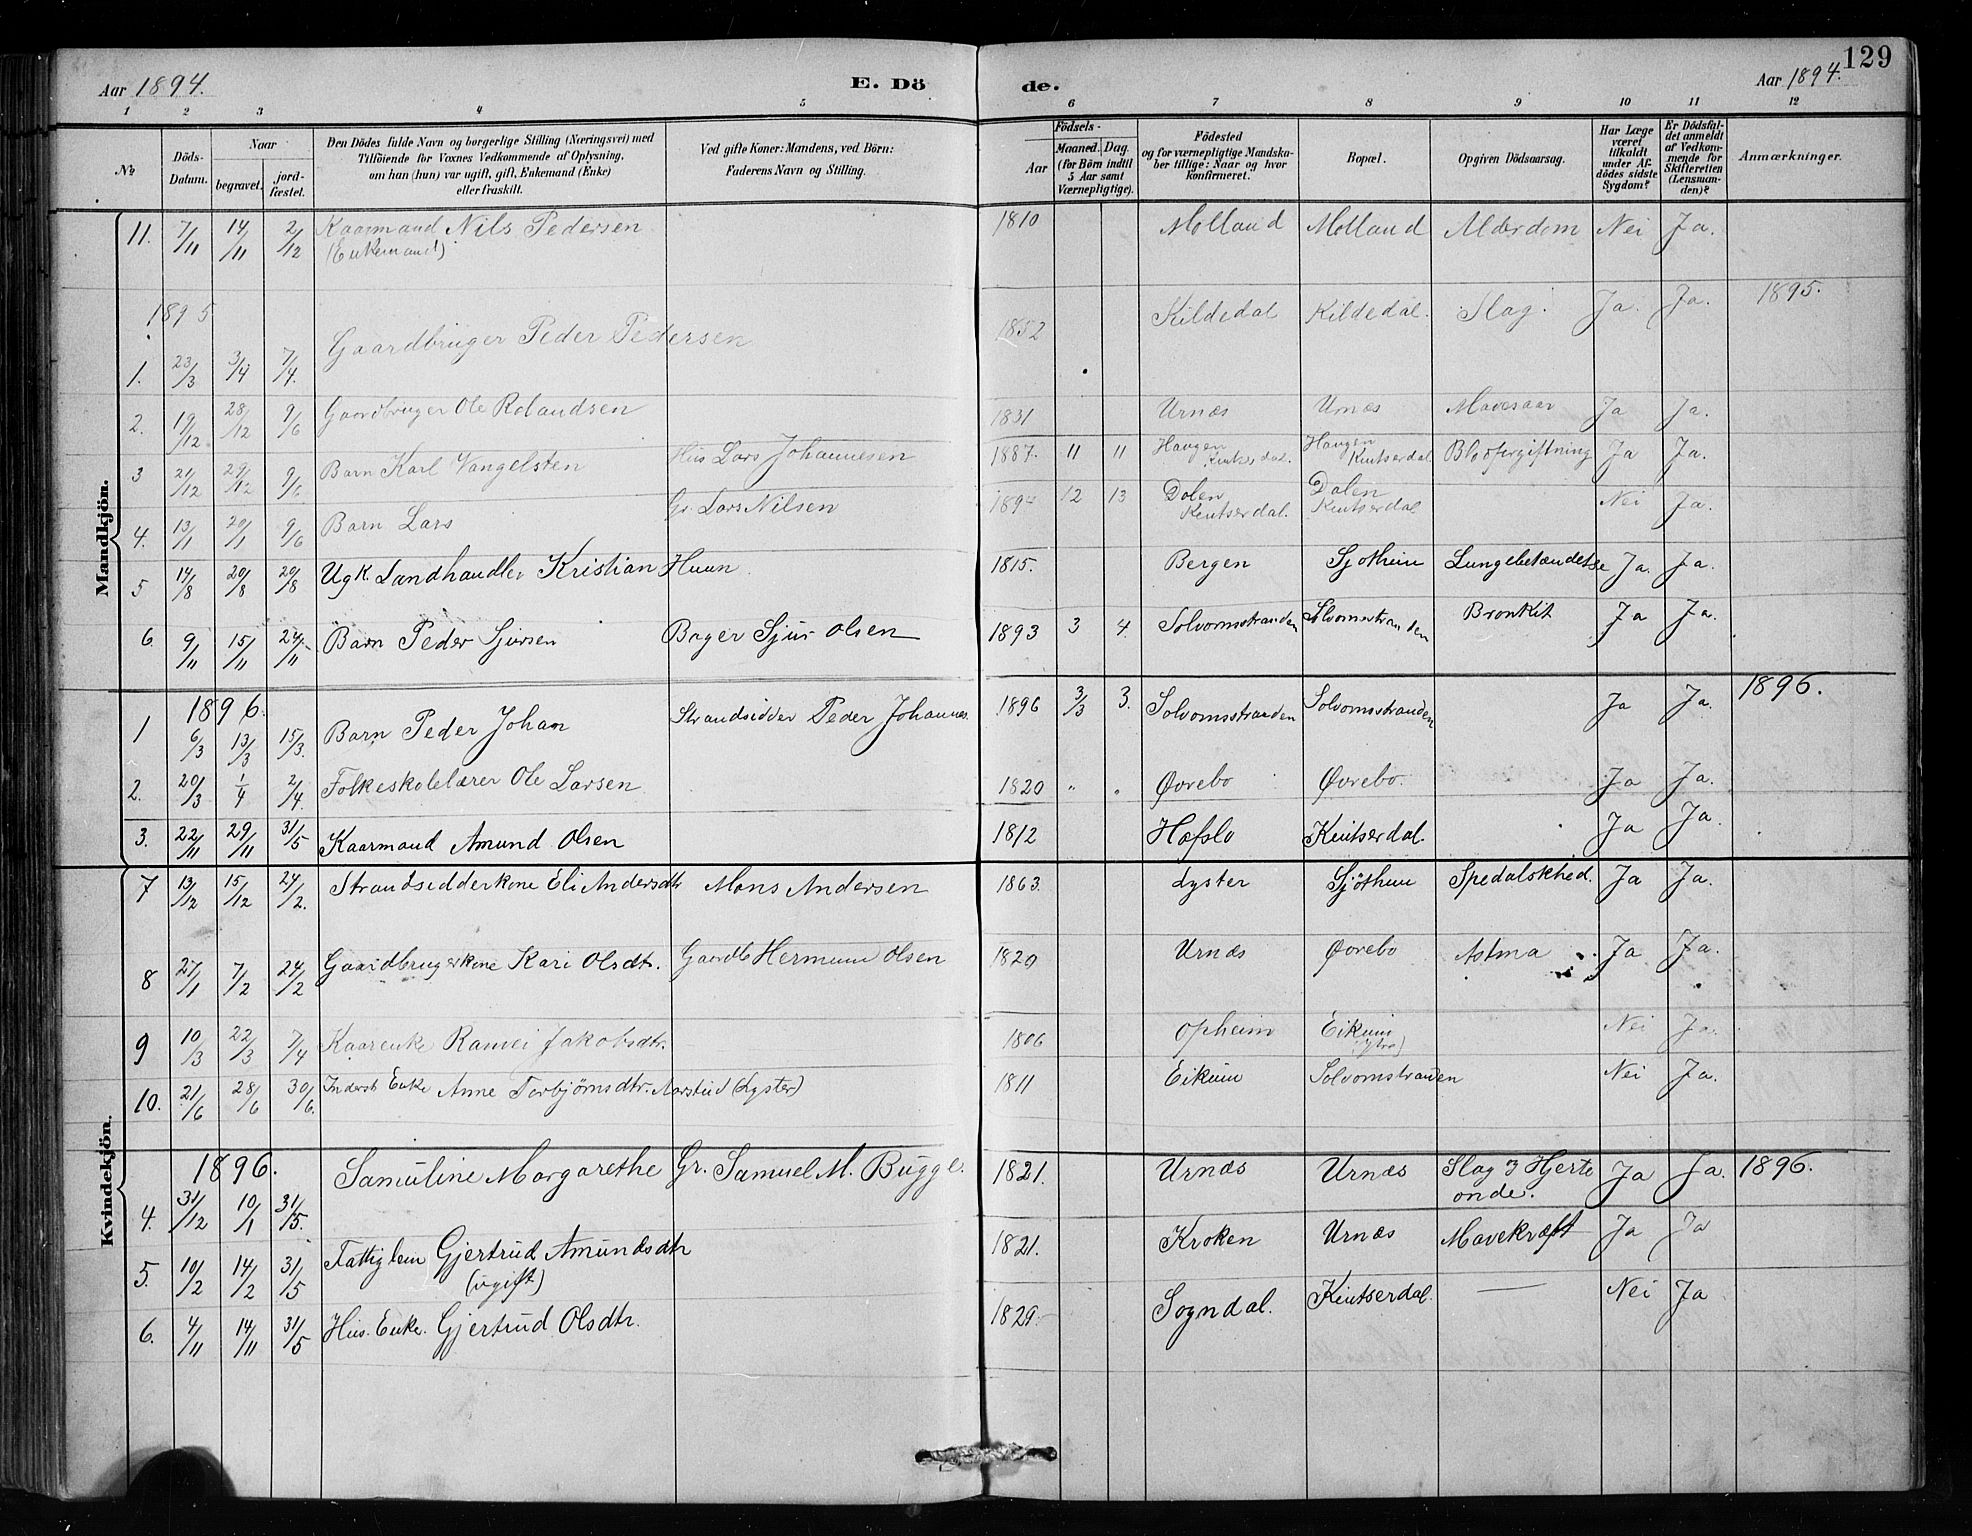 129
Aar 1894. E. Dö de. Aar 1894.
1 2 3 4 5 6 7 8 9 10 11 12
№ Döds-Datum. Naar begravet. jordfæstet. Den Dödes fulde Navn og borgerlige Stilling (Næringsvei) med Tilföiende for Voxnes Vedkommende af Oplysning, om han (hun) var ugift, gift, Enkemand (Enke) eller fraskilt. Ved gifte Koner: Mandens, ved Börn: Faderens Navn og Stilling. Födsels- Aar Maaned. Dag. (for Börn indtil 5 Aar samt Værnepligtige). Födested og for værnepligtige Mandskaber tillige: Naar og hvor konfirmeret. Bopæl. Opgiven Dödsaarsag. Har Læge været tilkaldt under Afdödes sidste Sygdom? Er Dödsfaldet anmeldt af Vedkommende for Skifteretten (Lensmanden)? Anmærkninger.
Mandkjön.
11. 7/11 14/11 2/12 Kaarmand Nils Pedersen 1810 Molland Molland Alderdom Nei Ja.
(Enkemand)
1895 1895.
1. 23/3 3/4 7/4. Gaardbruger Peder Pedersen 1852 Kildedal Kildedal. Slag. Ja. Ja.
2. 19/12 28/12 9/6 Gaardbruger Ole Rolandsen 1831 Urnæs Urnæs Mavesaar Ja Ja.
3 21/12 29/12 9/6 Barn Karl Vangelsten Hus Lars Johannesen 1887. 11 11 Haugen Kintserdal. Haugen Kintserdal. Blodforgiftning Ja Ja.
4. 13/1 20/1 9/6 Barn Lars Gr. Lars Nilsen 1894 12 13 Dalen Kintserdal. Dalen Kintserdal Nei Ja.
5 14/8 20/8 20/8 Ugk. Landhandler Kristian Huun 1815. Bergen Sjøtheim Lungebetændelse Ja. Ja.
6. 9/11 15/11 24/11 Barn Peder Sjursen Bager Sjur Olsen 1893 3 4. Solvornsstranden Solvornsstranden Bronkit Ja Ja.
1896. 1896.
1 6/3 13/3 15/3. Barn Peder Johan Strandsidder Peder Johannes. 1896 3/3 3. Solvornsstranden Solvornsstranden Ja Ja.
2. 20/3 1/4 2/4. Folkeskolelærer Ole Larsen 1820 " " Øvrebo Øvrebo. Ja Ja.
3. 22/11 29/11 31/5 Kaarmand Amund Olsen 1812 Hafslo Kintserdal. Ja Ja.
Kvindekjön.
7 13/12 15/12 24/2. Strandsidderkone Eli Andersdtr Mons Andersen 1863. Lyster Sjøtheim Spedalskhed. Ja Ja.
8 27/1 7/2 24/2 Gaardbrugerkone Kari Olsdtr. Gaardb Hermund Olsen 1820 Urnæs Øvrebo Astma Ja Ja.
9 10/3 22/3 7/4 Kaarenke Ranvei Jakobsdtr. 1806 Opheim Eikum (ytre) Nei Ja.
10. 21/6 28/6 30/6. Inderst Enke Anne Torbjørnsdtr. Aarstad (Lyster) 1811 Eikum Solvornstranden Nei Ja.
1896. 1896.
4. 31/12 10/1 31/5. Samuline Margarethe Gr. Samuel M. Bugge. 1821. Urnæs Urnæs Slag og Hjerte onde. Ja Ja.
5. 10/2 14/2 31/5 Fattiglem Gjertrud Amundsdtr 1821. Kroken Urnæs Mavekræft Ja Ja
(ugift)
6. 4/11 14/11 31/5 Hus. Enke. Gjertrud Olsdtr. 1829. Sogndal. Kintserdal. — Nei Ja